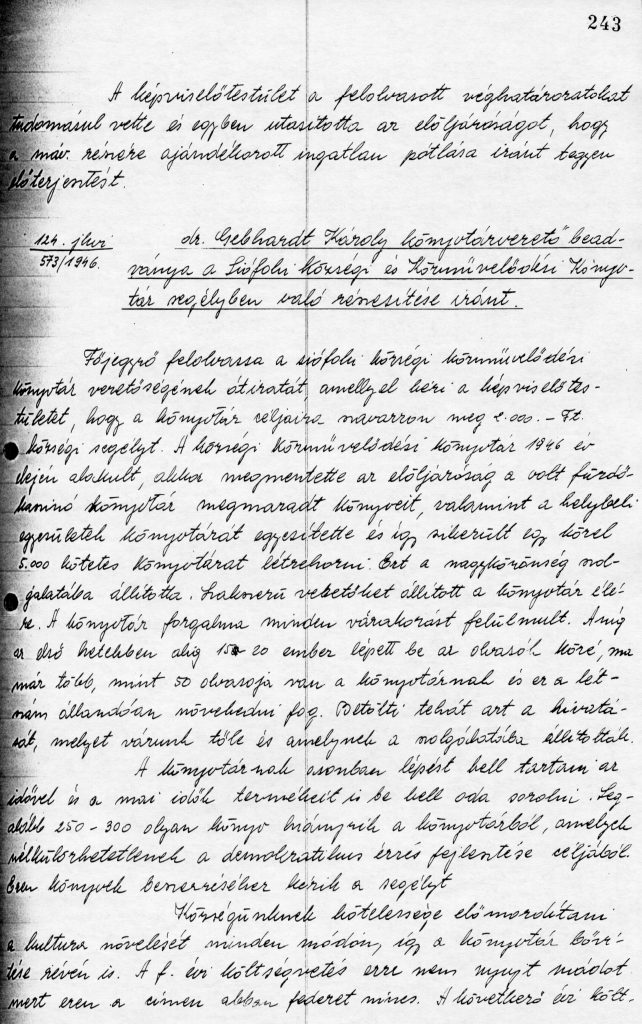 243
A képviselőtestület a felolvasott véghatározatokat
tudomásul vette és egyben utasította az elöljáróságot, hogy
a máv. részére ajándékozott ingatlan pótlása iránt tegyen
előterjesztést.
124. jkvi
573/1946.
dr. Gebhardt Károly könyvtárvezető bead-
ványa a Siófoki Községi és Közművelődési Könyv-
tár segélyben való részesítése iránt.
Főjegyző felolvassa a siófoki községi közművelődési
könyvtár vezetőségének átiratát, amellyel kéri a képviselőtes-
tületet, hogy a könyvtár céljaira szavazzon meg 2.000.- Ft.
községi segélyt. A községi közművelődési könyvtár 1946 év
elején alakult, akkor megmentette az elöljáróság a volt fürdő-
kaszinó könyvtár megmaradt könyveit, valamint a helybeli
egyesületek könyvtárát egyesítette és így sikerült egy közel
5.000 kötetes könyvtárat létrehozni. Ezt a nagyközönség szol-
gálatába állította. Szakszerű vezetőket állított a könyvtár élé-
re. A könyvtár forgalma minden várakozást felülmult. Amíg
az első hetekben alig 15-20 ember lépett be az olvasók közé, ma
már több, mint 50 olvasója van a könyvtárnak és ez a lét-
szám állandóan növekedni fog. Betölti tehát azt a hivatá-
sát, melyet várunk tőle és amelynek a szolgálatába állították.
A könyvtárnak azonban lépést kell tartani az
idővel és a mai idők termékeit is be kell oda sorolni. Leg-
alább 250-300 olyan könyv hiányzik a könyvtárból, amelyek
nélkülözhetetlenek a demokratikus érzés fejlesztése céljából.
Ezen könyvek beszerzéséhez kérik a segélyt
Községünknek kötelessége előmozdítani
a kultura növelését minden módon, így a könyvtár bőví-
tése révén is. A f. évi költségvetés erre nem nyujt módot
mert ezen a címen abban fedezet nincs. A következő évi költ-